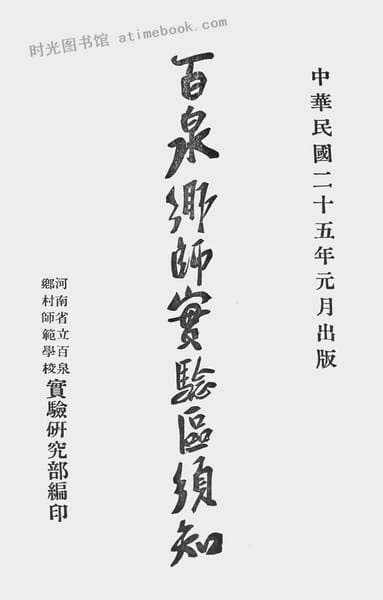 时光图书馆 atimebook.com
中華民國二十五年元月出版
百泉鄉師實驗區須知
河南省立百泉
鄉村師範學校
實驗研究部編印